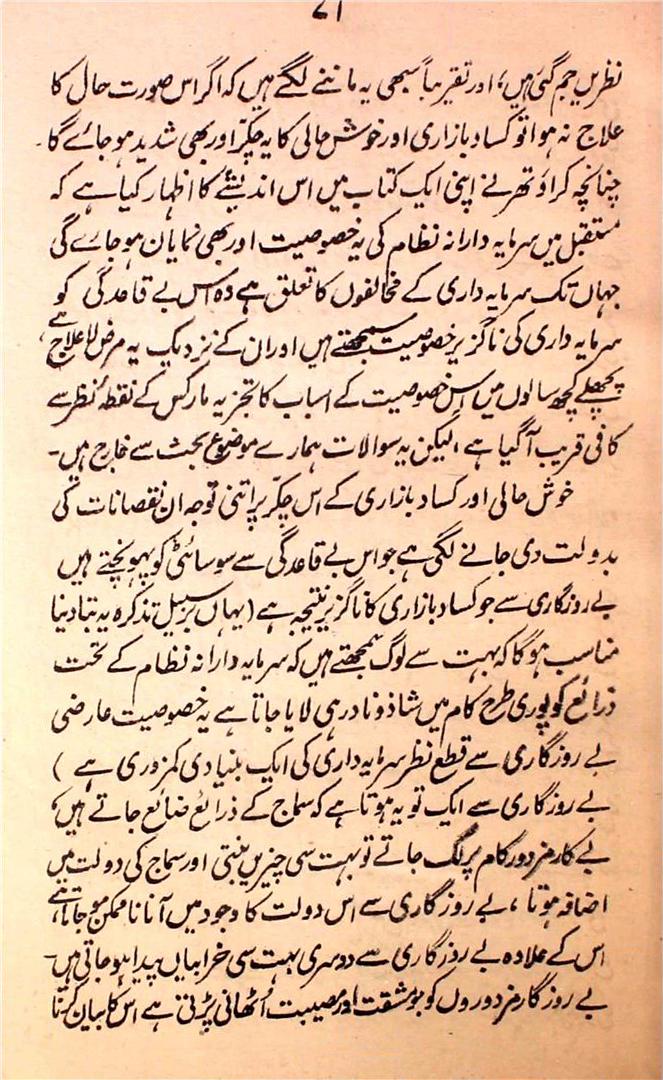 ۷۱
نظریں جم گئی ہیں، اور تقریباً سبھی یہ ماننے لگے ہیں کہ اگر اس صورت حال کا
علاج نہ ہوا تو کساد بازاری اور خوش حالی کا یہ چکر اور بھی شدید ہو جائے گا۔
چنانچہ کراؤتھر نے اپنی ایک کتاب میں اس اندیشے کا اظہار کیا ہے کہ
مستقبل میں سرمایہ دارانہ نظام کی یہ خصوصیت اور بھی نمایاں ہو جاے گی
جہاں تک سرمایہ داری کے مخالفوں کا تعلق ہے وہ اس بے قاعدگی کو
سرمایہ داری کی ناگزیر خصوصیت سمجھتے ہیں اور ان کے نزدیک یہ مرض لا علاج ہے،
پچھلے کچھ سالوں میں اس خصوصیت کے اسباب کا تجزیہ مارکس کے نقطہ نظر سے
کافی قریب آگیا ہے، لیکن یہ سوالات ہمارے موضوع بحث سے خارج ہیں۔
خوش حالی اور کساد بازاری کے اس چکر پر اتنی توجہ ان نقصانات کی
بدولت دی جانے لگی ہے جو اس بے قاعدگی سے سوسائٹی کو پہونچتے ہیں
بے روزگاری سے جو کساد بازاری کا ناگزیر نتیجہ ہے (یہاں بر سبیل تذکرہ یہ بتا دینا
مناسب ہوگا کہ بہت سے لوگ سمجھتے ہیں کہ سرمایہ دارانہ نظام کے تحت
ذرائع کو پوری طرح کام میں شاذ و نادر ہی لایا جاتا ہے یہ خصوصیت عارضی
بے روزگاری سے قطع نظر سرمایہ داری کی ایک بنیادی کمزوری ہے )
بے روزگاری سے ایک تو یہ ہوتا ہے کہ سماج کے ذرائع ضائع جاتے ہیں،
بے کار مزدور کام پر لگ جاتے تو بہت سی چیزیں بنتی اور سماج کی دولت میں
اضافہ ہوتا، بے روزگاری سے اس دولت کا وجود میں آنا ناممکن ہو جاتا ہے،
اس کے علاوہ بے روزگاری سے دوسری بہت سی خرابیاں پیدا ہو جاتی ہیں۔
بے روزگار مزدوروں کو جو مشقت اور مصیبت اُٹھانی پڑتی ہے اس کا بیان کرنا